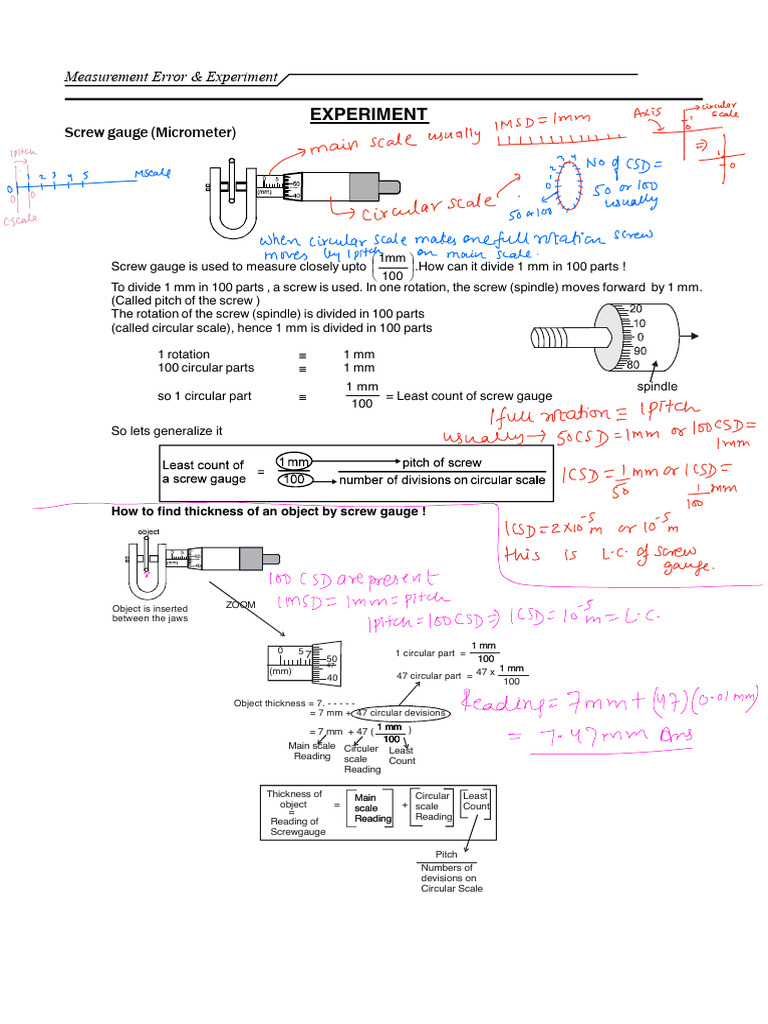 Measurement Error & Experiment
EXPERIMENT
Screw gauge (Micrometer)
main scale usually 1MSD = 1mm
Axis
circular scale
1
0
⇒
1
0
1pitch
0 1 2 3 4 5 Mscale
0 0
Cscale
0 5
(mm)
50
40
circular scale
0 1 2 3 4
50 or 100
No of CSD =
50 or 100
usually
when circular scale makes one full rotation screw
moves by 1pitch on main scale.
Screw gauge is used to measure closely upto (1mm/100).How can it divide 1 mm in 100 parts !
To divide 1 mm in 100 parts , a screw is used. In one rotation, the screw (spindle) moves forward by 1 mm.
(Called pitch of the screw )
The rotation of the screw (spindle) is divided in 100 parts
(called circular scale), hence 1 mm is divided in 100 parts
20
10
0
90
80
spindle
1 rotation ≡ 1 mm
100 circular parts ≡ 1 mm
so 1 circular part ≡ 1 mm/100 = Least count of screw gauge
1 full rotation ≡ 1pitch
usually → 50CSD = 1mm or 100CSD = 1mm
So lets generalize it
Least count of a screw gauge = 1 mm/100 → pitch of screw/number of divisions on circular scale
1CSD = 1/50 mm or 1CSD = 1/100 mm
How to find thickness of an object by screw gauge !
1CSD = 2×10⁻⁵ m or 10⁻⁵ m
this is L.C. of screw
gauge.
object
0 5
(mm)
40
Object is inserted
between the jaws
ZOOM
100 CSD are present
1MSD = 1mm = pitch
1pitch = 100CSD ⇒ 1CSD = 10⁻⁵ m = L.C.
0 5 7
(mm)
50
47
40
1 circular part = 1 mm/100
47 circular part = 47 x 1 mm/100
Object thickness = 7. - - - - -
= 7 mm + 47 circular devisions
= 7 mm + 47 (1 mm/100)
Main scale Reading
Circuler scale Reading
Least Count
Reading = 7mm + (47)(0.01mm)
= 7.47mm Ans
Thickness of object = Reading of Screwgauge = [Main scale Reading] + [Circular scale Reading] [Least Count]
Pitch
Numbers of
devisions on
Circular Scale